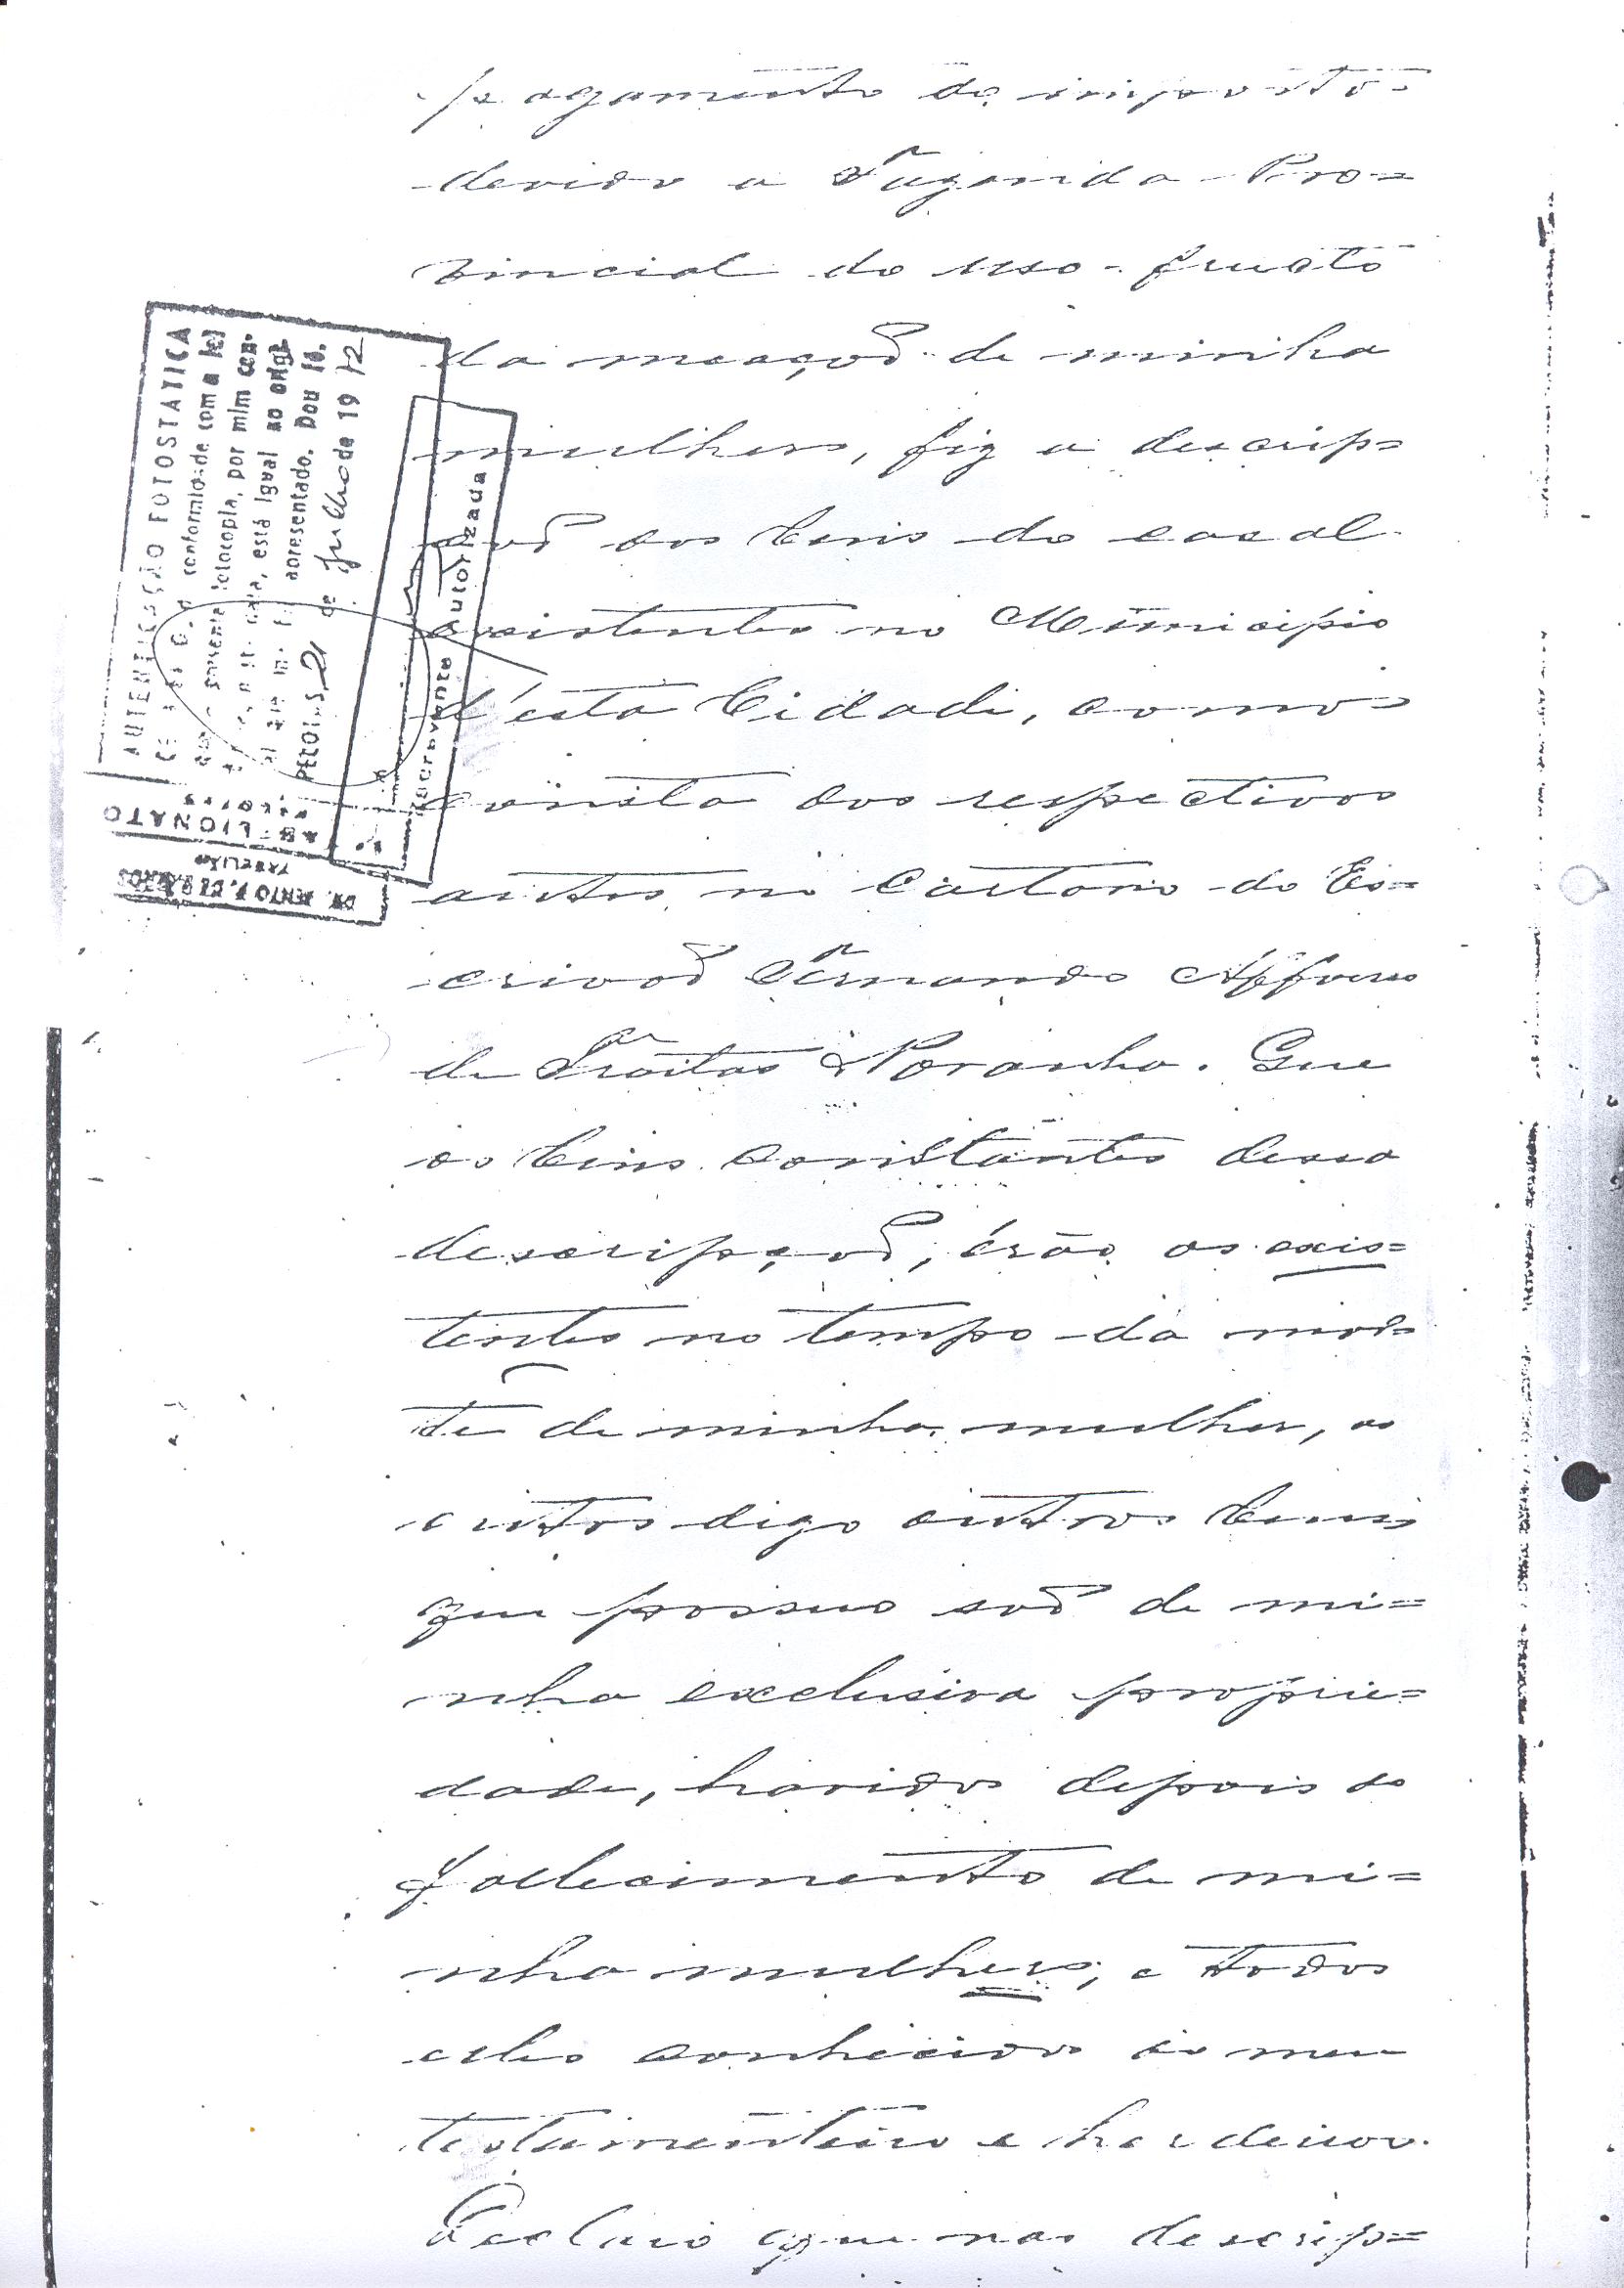 pagamento do imposto
devido a Fazenda Pro=
vincial do uso-fructo
da meaçaõ de minha
mulher, fiz a descrip=
çaõ dos bens do casal
existentes no Municipio
d'esta Cidade, como
consta dos respectivos
autos no Cartorio do Es=
crivaõ Fernando Affonso
de Freitas Noronha. Que
os bens constantes dessa
descripçaõ, érão os exis=
tentes no tempo da mor=
te de minha mulher, os
outros digo outros bens
que possuo saõ de mi=
nha exclusiva proprie=
dade, havidos depois do
fallecimento de mi=
nha mulher, e todos
elles conhecidos do meu
testamenteiro e herdeiros.
Declaro que nas descrip=
AUTENTICAÇÃO FOTOSTATICA
conformidade com a lei
presente fotocopia, por mim con-
data, está igual ao origi
apresentado. Dou fé.
Pelotas, 21 de Julho de 19 72
Escrevente Autorizada
TABELIONATO
PELOTAS
TABELIÃO